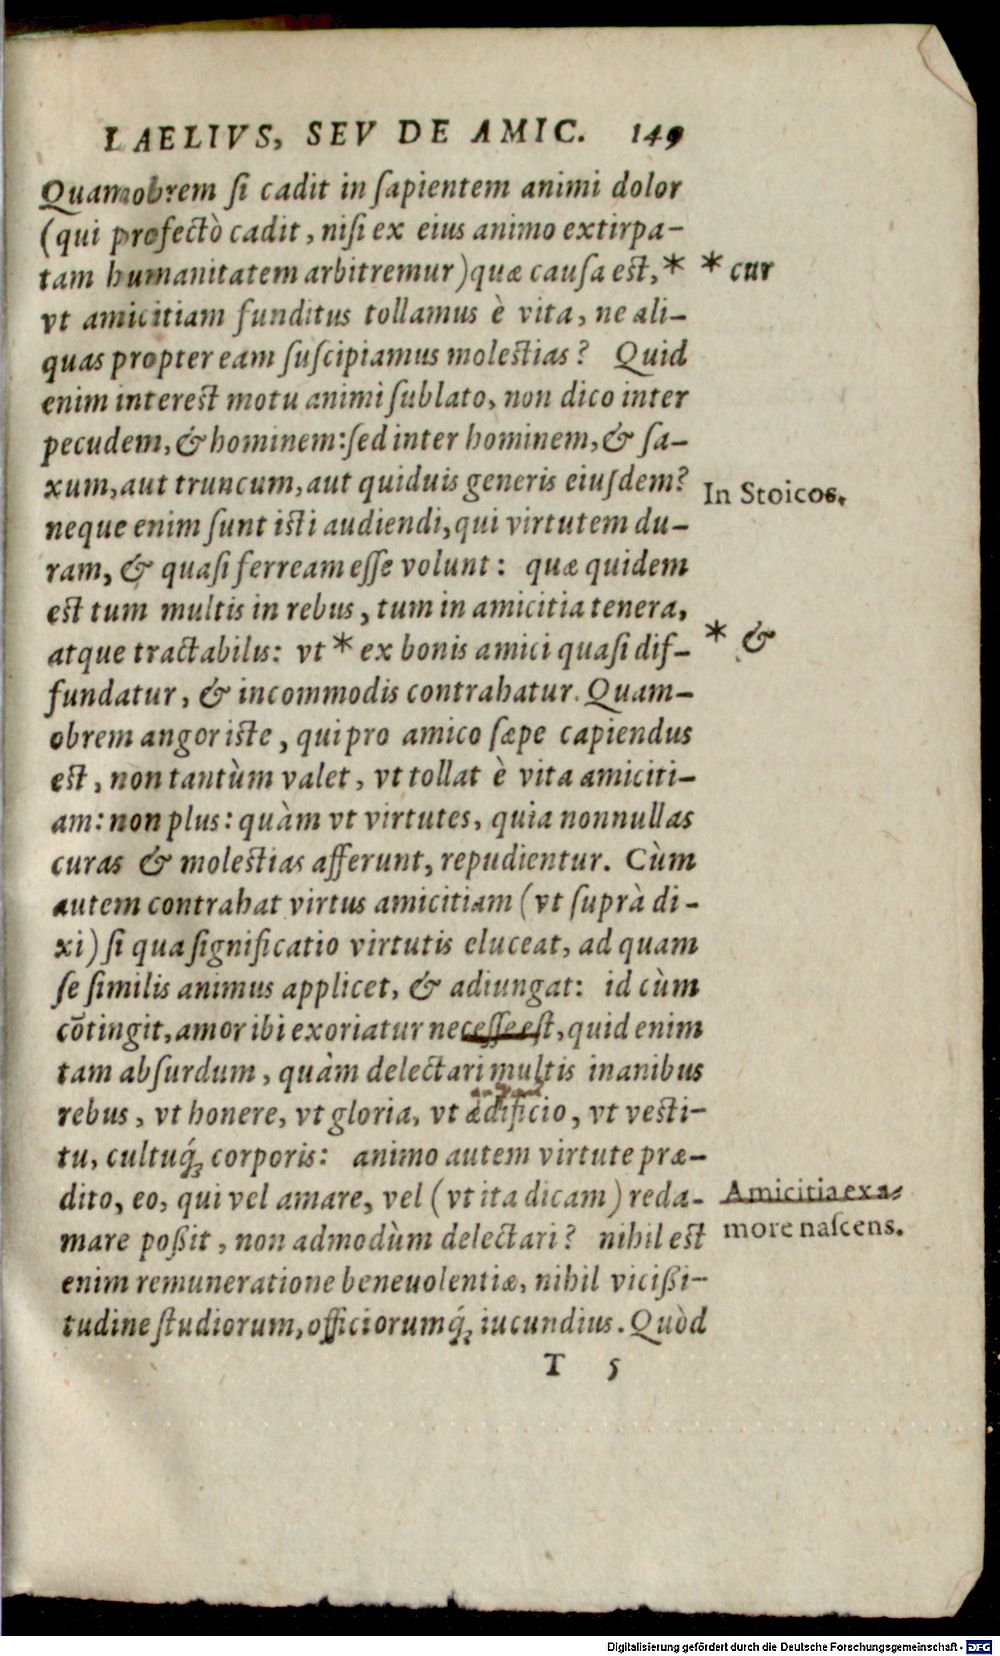 LAELIVS, SEV DE AMIC. 149
Quamobrem ſi cadit in ſapientem animi dolor
(qui profectò cadit, niſi ex eius animo extirpa-
tam humanitatem arbitremur) quæ cauſa est, *
* cur
vt amicitiam funditus tollamus è vita, ne ali-
quas propter eam ſuſcipiamus molestias? Quid
enim interest motu animi ſublato, non dico inter
pecudem, & hominem: ſed inter hominem, & ſa-
xum, aut truncum, aut quiduis generis eiuſdem?
In Stoicos.
neque enim ſunt isti audiendi, qui virtutem du-
ram, & quaſi ferream eſſe volunt: quæ quidem
est tum multis in rebus, tum in amicitia tenera,
atque tractabilis: vt * ex bonis amici quaſi dif-
* &
fundatur, & incommodis contrahatur. Quam-
obrem angor iste, qui pro amico ſæpe capiendus
est, non tantùm valet, vt tollat è vita amiciti-
am: non plus: quàm vt virtutes, quia nonnullas
curas & molestias afferunt, repudientur. Cùm
autem contrahat virtus amicitiam (vt ſuprà di-
xi) ſi qua ſignificatio virtutis eluceat, ad quam
ſe ſimilis animus applicet, & adiungat: id cùm
cõtingit, amor ibi exoriatur neceſſe eſt, quid enim
tam abſurdum, quàm delectari multis inanibus
rebus, vt honere, vt gloria, vt ædificio, vt vesti-
tu, cultuq́; corporis: animo autem virtute præ-
dito, eo, qui vel amare, vel (vt ita dicam) reda-
Amicitia ex a-
mare poßit, non admodùm delectari? nihil est
more naſcens.
enim remuneratione beneuolentiæ, nihil vicißi-
tudine ſtudiorum, officiorumq́; iucundius. Quòd
T 5
Digitalisierung gefördert durch die Deutsche Forschungsgemeinschaft - DFG